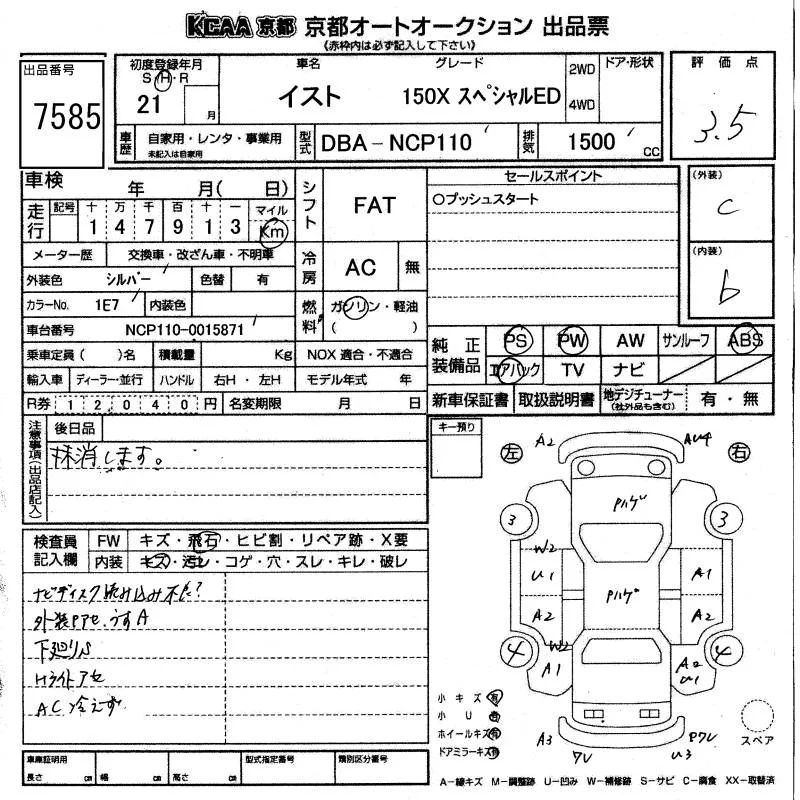 KCAA 京都 京都オートオークション 出品票
(赤枠内は必ず記入して下さい)
出品番号
7585
初度登録年月
S・H・R
21 月
車名
イスト
グレード
150X スペシャルED
2WD
4WD
ドア・形状
評価点
3.5
車歴
自家用・レンタ・事業用
未記入は自家用
型式
DBA-NCP110
排気
1500 CC
車検 年 月( 日)
走行
記号 十 万 千 百 十 一 マイル
1 4 7 9 1 3 Km
シフト
FAT
セールスポイント
○プッシュスタート
(外装)
C
(内装)
b
メーター歴 交換車・改ざん車・不明車
外装色 シルバー 色替 有
冷房
AC 無
カラーNo. 1E7 内装色
燃料
ガソリン・軽油
( )
車台番号 NCP110-0015871
乗車定員( )名 積載量 Kg NOX 適合・不適合
純正装備品
PS PW AW サンルーフ ABS
エアバック TV ナビ
輸入車 ディーラー・並行 ハンドル 右H・左H モデル年式 年
R券 12040円 名変期限 月 日
新車保証書 取扱説明書 地デジチューナー 有・無
(社外品も含む)
注意事項(出品店記入)
後日品
抹消します。
キー預り
左
右
A2
AU4
Pハゲ
3
3
W2
U1
A1
Pハゲ
A2
A2
W2
4
4
A1
A2
U1
A3
7U
P7U
U3
検査員記入欄
FW キズ・飛石・ヒビ割・リペア跡・X要
内装 キズ・汚レ・コゲ・穴・スレ・キレ・破レ
ナビディスク読み込み不化?
外装Pアセ、うすA
下廻りS
Hライトアセ
AC冷えず
小キズ 有
小U 有
ホイールキズ 有
ドアミラーキズ 有
スペア
車庫証明用
長さ cm 幅 cm 高さ cm
型式指定番号
類別区分番号
A-線キズ M-調整跡 U-凹み W-補修跡 S-サビ C-腐食 XX-取替済